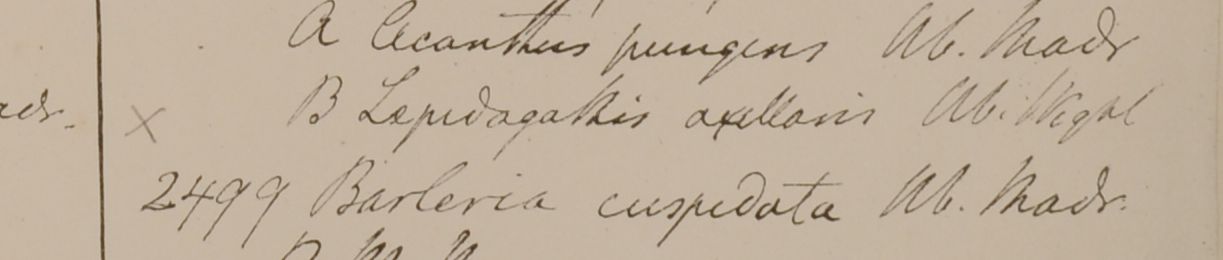 A Acanthus pungens Hb. Madr
adr.
× B Lepidagathis axillaris Hb. Wight
2499 Barleria cuspidata Hb. Madr.